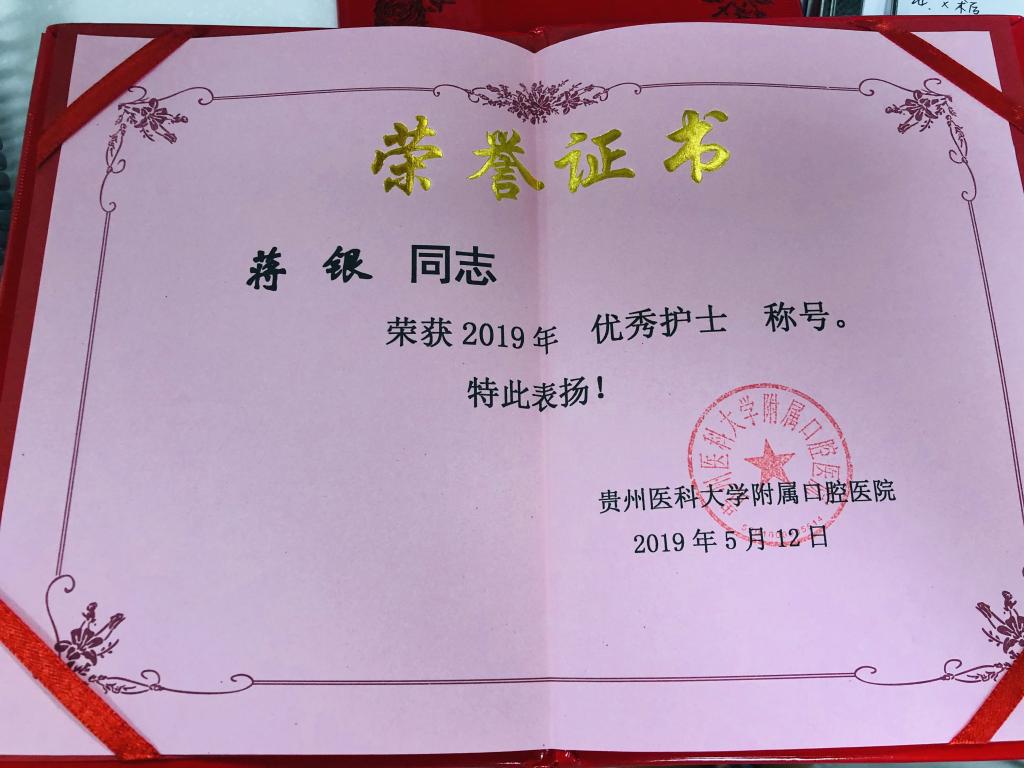 荣誉证书
蒋银 同志
荣获2019年 优秀护士 称号。
特此表扬！
贵州医科大学附属口腔医院
贵州医科大学附属口腔医院
2019年5月12日